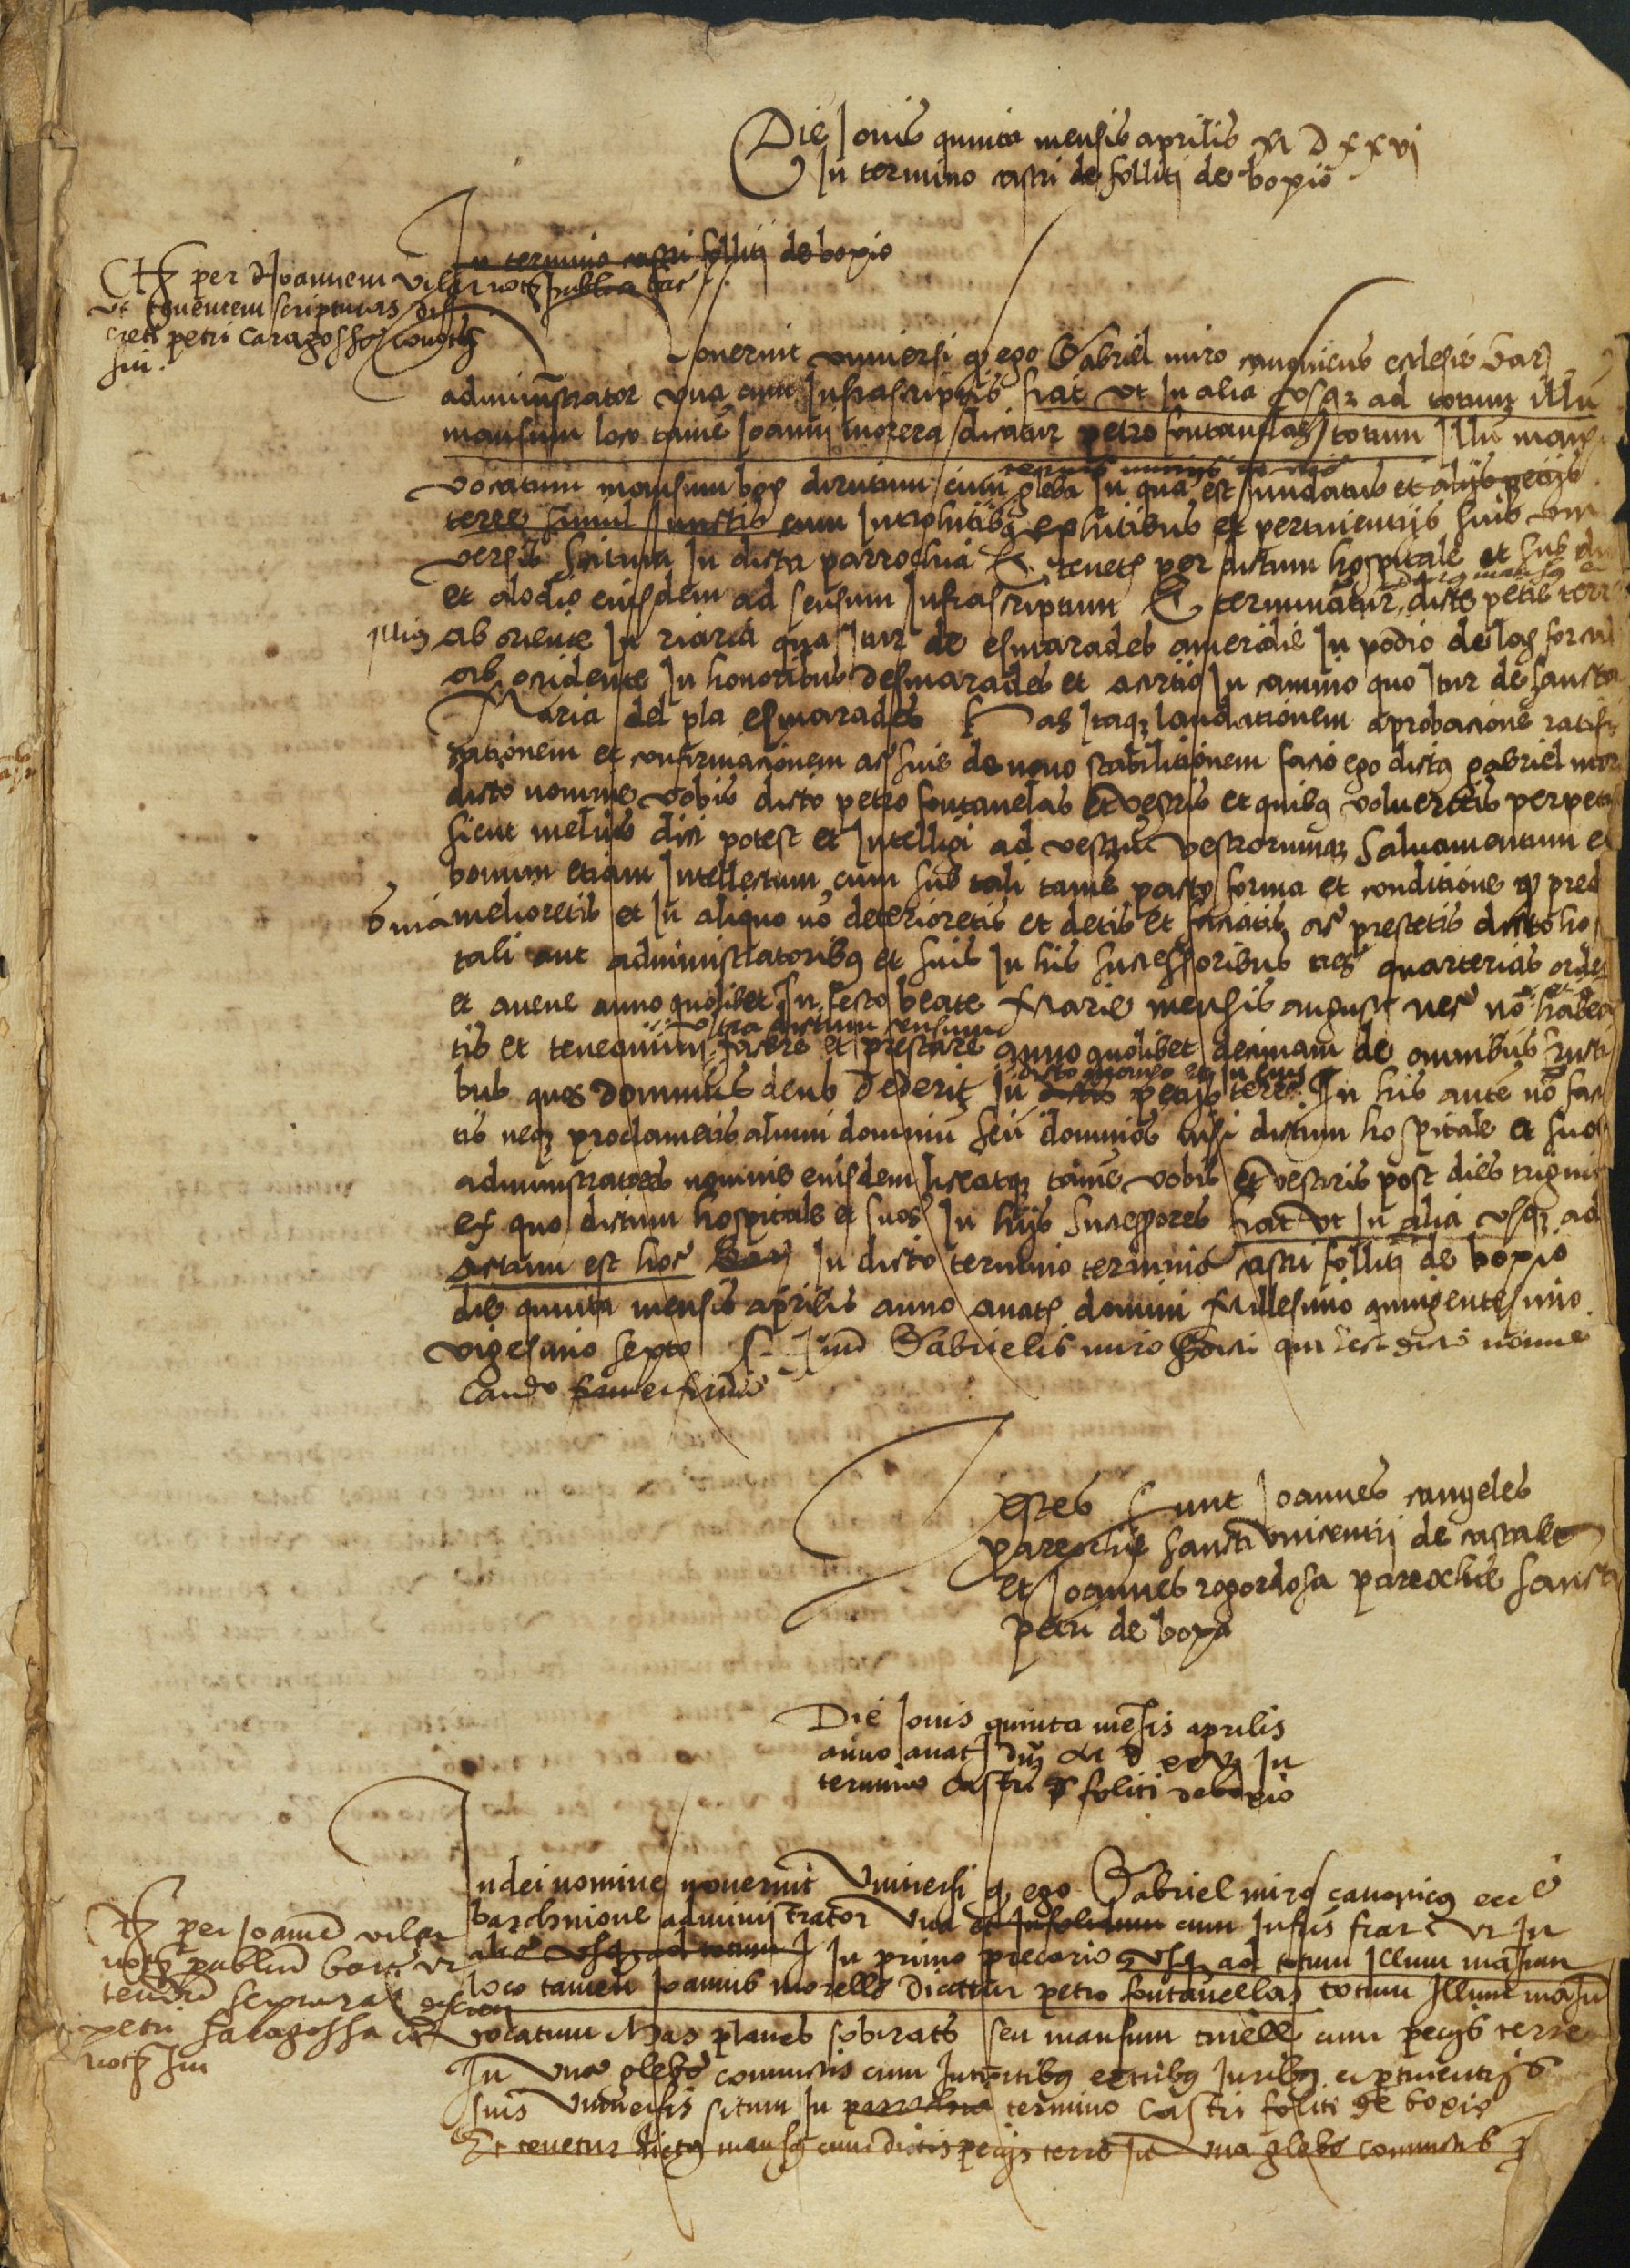 Die Jovis quinta mensis aprilis M D xxvj
In termino castri de folliti de boxio
In termino castri folliti de boxio
per Joannem vilar not publicu bar
ut tenentem scripturas dis
creti petri caragossa
sui.
overint universi q ego Gabriel miro canonicus ecclesie bar
administrator una cum Infrascriptis fiat ut In alia usq ad totum illu
mansum loco tame Joanni morera dicatur petro fontanelas totum Illu mans
vocatum mansum box dirutum cum gleba In qua est fundatus et alijs petijs
terre simul Junctis cum Introhitibus exhitibus et pertinentijs suis uni
versis situm In dicta parrochia Et tenet per dictum hospitale et sub do
et alodio eiusdem ad sensum Infrascriptum Et terminatur dicte petie terre
ab oriente In riaria qua Itur de esmarades a meridie In podio de las forcas
ab occidente In honoribus desmarades et a circio In camino quo Itur de sancta
Maria del pla esmarades Has Itaq laudationem aprobacione ratifi
cationem et confirmacionem ac sive de novo stabilitionem facio ego dictus gabriel miro
dicto nomine vobis dicto petro fontanelas et vestris et quibus volueritis perpetuo
sicut melius dici potest et Intelligi ad vestru vestrorumq salvamentum et
bonum etiam Intellectum cum sub tali tame pacto forma et conditione q pred
omia melioretis et In aliquo no deterioretis et detis et faciatis ac prestetis dicto hos
tali aut administratoribus et suis In his successoribus tres quarterias ordei
et avene anno quolibet In festo beate Marie mensis augusti nec no habea
ultra dictum censum
tis et teneamini facere et prestare anno quolibet decimam de omnibus fructi
bus quos dominus deus dederit In dictis petijs terre In his aute no fac
tis neq proclametis alium dominu seu dominos nisi dictum hospitale et suos
administratores nomine eiusdem liceatq tame vobis et vestris post dies triginta
ex quo dictum hospitale et suos In hijs successores fiat ut In alia usq ad
actum est hoc In dicto termino termino castri folliti de boxio
die quinta mensis aprilis anno a nat domini Millesimo quingentesimo
vigesimo sexto S. num Gabrielis miro qui dicto nomine
laudo
Testes sunt Joannes cangeles
parochie sancti vincentij de castalet
et Joannes rogordosa parochie sancti
petri de boxa
Die Jovis quinta mesis aprilis
anno a nat dni M D xxvj In
termino castri folliti de boxio
In dei nomine noverint Universi q ego Gabriel miro canonicus
barchinone administrator una et Insolidum cum Infris fiat ut In
alia usq ad totum In primo precario usq ad totum Illum mansum
loco tamen Joannis morello dicattur petro fontanellas totum Illum masu
vocatum Mas planes sobirats seu mansum cum pecijs terre
In una gleba coniunctis cum Introitibus exitibus Juribus et ptinentijs
suis universis situm In parrochia termino castri foliti de boxio
Et tenetur dictus mansus cum dictis pecijs terre In una gleba coniunctis
per Joane vilar
not publicu barc ut
tenente scripturas discreti
petri saragossa
not sui